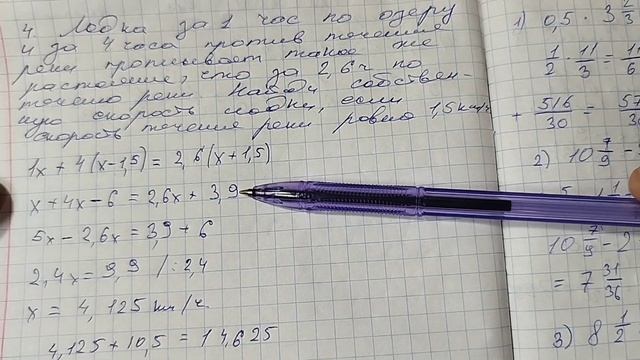 4. Лодка за 1 час по озеру
и за 4 часа против течения
реки проплывает такое же
расстояние, что за 2,6 ч по
течению реки. Найди собствен-
ную скорость лодки, если
скорость течения реки равна 1,5 км/ч
1x + 4(x-1,5) = 2,6(x+1,5)
x + 4x - 6 = 2,6x + 3,9
5x - 2,6x = 3,9 + 6
2,4x = 9,9 /:2,4
x = 4,125 км/ч.
4,125 + 10,5 = 14,625
1) 0,5 · 3 2/3
1/2 · 11/3 = 11/6
+ 516/30 = 57
2) 10 7/9 -
10 7/9 - 2
= 7 31/36
3) 8 1/2